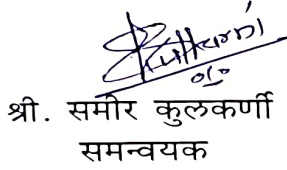 श्री. समीर कुलकर्णी
समन्वयक